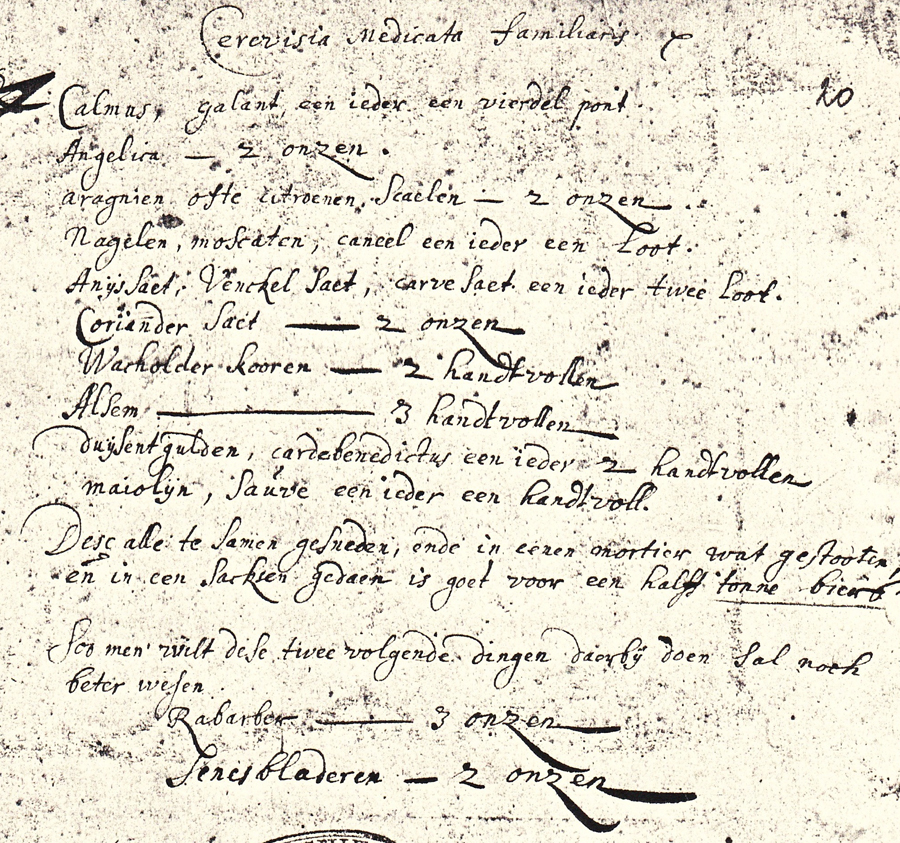 Cerevisia Medicata familiaris.
20
Calmus, galant, een ieder een vierdel pont.
Angelica — 2 onzen.
aragnien ofte citroenen Scaelen — 2 onzen.
Nagelen, moscaten, caneel een ieder een Loot.
Anijs Saet, Venckel Saet, carve Saet een ieder twee Loot.
Coriander Saet — 2 onzen
Wacholder kooren — 2 handtvollen
Alsem — 3 handtvollen
duijsentgulden, cardebenedictus een ieder 2 handtvollen
maiolijn, Sauve een ieder een handtvoll.
Dese alle te samen gesneden, ende in eenen mortier wat gestooten,
en in een Sacksen gedaen is goet voor een halff tonne biers
Soo men wilt dese twee volgende dingen daerbij doen sal noch
beter wesen
Rabarber — 3 onzen
Senesbladeren — 2 onzen